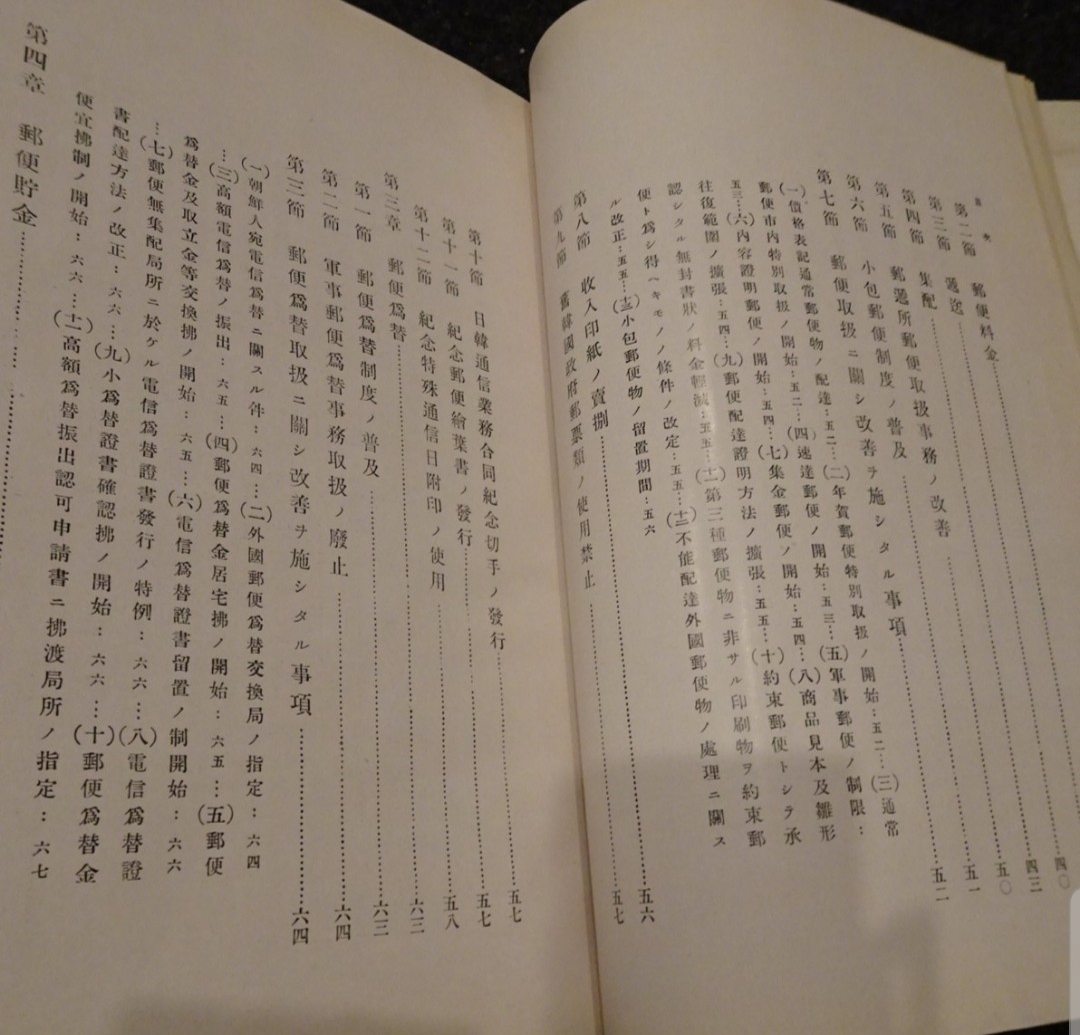 目次
第二節 郵便料金 四〇
第三節 遞送 四三
第四節 集配 五〇
第五節 郵遞所郵便取扱事務ノ改善 五一
第六節 小包郵便制度ノ普及 五二
第七節 郵便取扱ニ關シ改善ヲ施シタル事項
(一)價格表記通常郵便物ノ配達：五二…(二)年賀郵便特別取扱ノ開始：五二…(三)通常
郵便市内特別取扱ノ開始：五二…(四)速達郵便ノ開始：五三…(五)軍事郵便ノ制限：
五三…(六)内容證明郵便ノ開始：五四…(七)集金郵便ノ開始：五四…(八)商品見本及雛形
往復範圍ノ擴張：五四…(九)郵便配達證明方法ノ擴張：五五…(十)約束郵便トシテ承
認シタル無封書狀ノ料金輕減：五五…(十一)第三種郵便物ニ非サル印刷物ヲ約束郵
便ト爲シ得ヘキモノノ條件ノ改定：五五…(十二)不能配達外國郵便物ノ處理ニ關ス
ル改正：五五…(十三)小包郵便物ノ留置期間：五六
第八節 收入印紙ノ賣捌 五六
第九節 舊韓國政府郵票類ノ使用禁止 五七
第十節 日韓通信業務合同紀念切手ノ發行 五七
第十一節 紀念郵便繪葉書ノ發行 五七
第十二節 紀念特殊通信日附印ノ使用 五八
第三章 郵便爲替 六三
第一節 郵便爲替制度ノ普及 六三
第二節 軍事郵便爲替事務取扱ノ廢止 六四
第三節 郵便爲替取扱ニ關シ改善ヲ施シタル事項 六四
(一)朝鮮人宛電信爲替ニ關スル件：六四…(二)外國郵便爲替交換局ノ指定：六四
…(三)高額電信爲替ノ振出：六五…(四)郵便爲替金居宅拂ノ開始：六五…(五)郵便
爲替金及取立金等交換拂ノ開始：六五…(六)電信爲替證書留置ノ制開始：六六
…(七)郵便無集配局所ニ於ケル電信爲替證書發行ノ特例：六六…(八)電信爲替證
書配達方法ノ改正：六六…(九)小爲替證書確認拂ノ開始：六六…(十)郵便爲替金
便宜拂制ノ開始：六六…(十一)高額爲替振出認可申請書ニ拂渡局所ノ指定：六七
第四章 郵便貯金